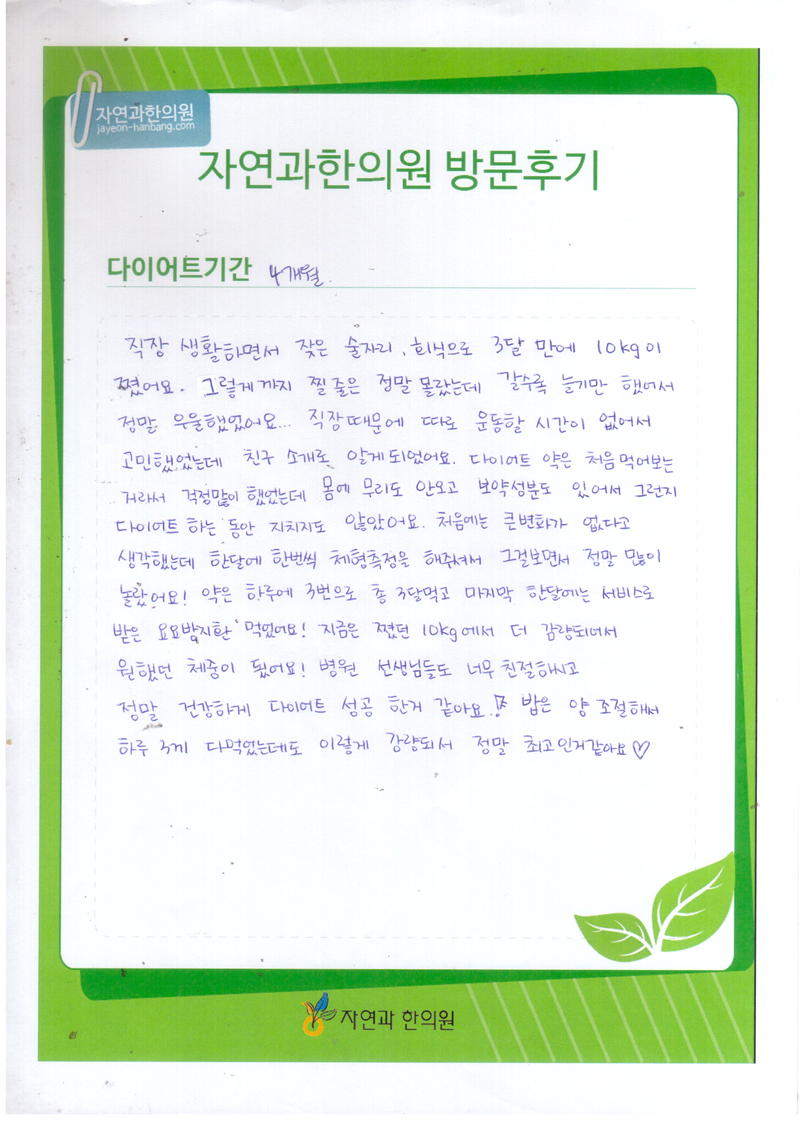 자연과한의원
jayeon-hanbang.com
자연과한의원 방문후기
다이어트기간 4개월
직장 생활하면서 잦은 술자리, 회식으로 3달 만에 10kg이
쪘어요. 그렇게까지 찔 줄은 정말 몰랐는데 갈수록 늘기만 했어서
정말 우울했었어요... 직장때문에 따로 운동할 시간이 없어서
고민했었는데 친구 소개로 알게되었어요. 다이어트 약은 처음 먹어보는
거라서 걱정많이 했었는데 몸에 무리도 안오고 보약성분도 있어서 그런지
다이어트 하는 동안 지치지도 않았어요. 처음에는 큰변화가 없다고
생각했는데 한달에 한번씩 체형측정을 해주셔서 그걸보면서 정말 많이
놀랐어요! 약은 하루에 3번으로 총 3달먹고 마지막 한달에는 서비스로
받은 요요방지환 먹었어요! 지금은 쪘던 10kg에서 더 감량되어서
원했던 체중이 됐어요! 병원 선생님들도 너무 친절하시고
정말 건강하게 다이어트 성공 한거 같아요! 밥은 양 조절해서
하루 3끼 다먹었는데도 이렇게 감량되서 정말 최고인거같아요♡
자연과 한의원